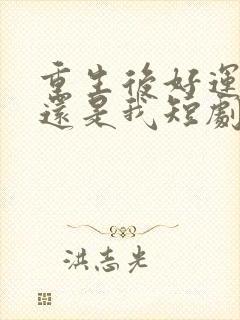 重生後好運
還是我短劇
洪志光